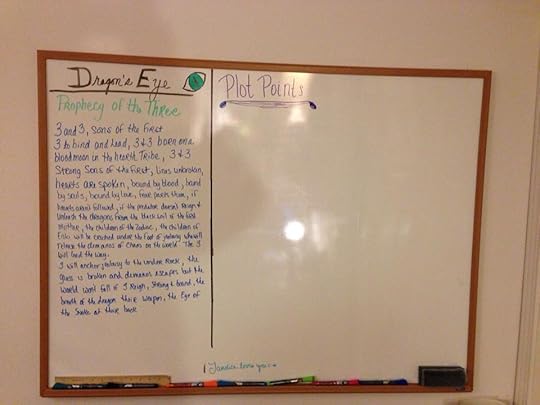 Dragon's Eye
Prophecy of the Three
3 and 3, Sons of the First
3 to bind and lead, 3 & 3 born on a
bloodmoon in the hearth Tribe, 3 & 3
Strong Sons of the First, lines unbroken,
hearts are spoken, bound by blood, band
by souls, bound by love, fear parts them, if
hearts aren't followed, if the doesn't Reign &
Unleash the dragons from the black soil of the first
mother, the children of the Zodiac, the children of
will be crushed under the foot of who will
release the demons of Chaos on the world. The 3
will lead the way.
3 will anchor to the Rock, the
glass is broken and demons escape but the
world won't fall if 3 Reign, Strong & bound, the
breath of the dragon their weapon, the Eye of
the Snake at their back
Plot Points
loves you